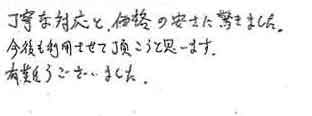 丁寧な対応と、価格の安さに驚きました。
今後も利用させて頂こうと思います。
有難うございました。